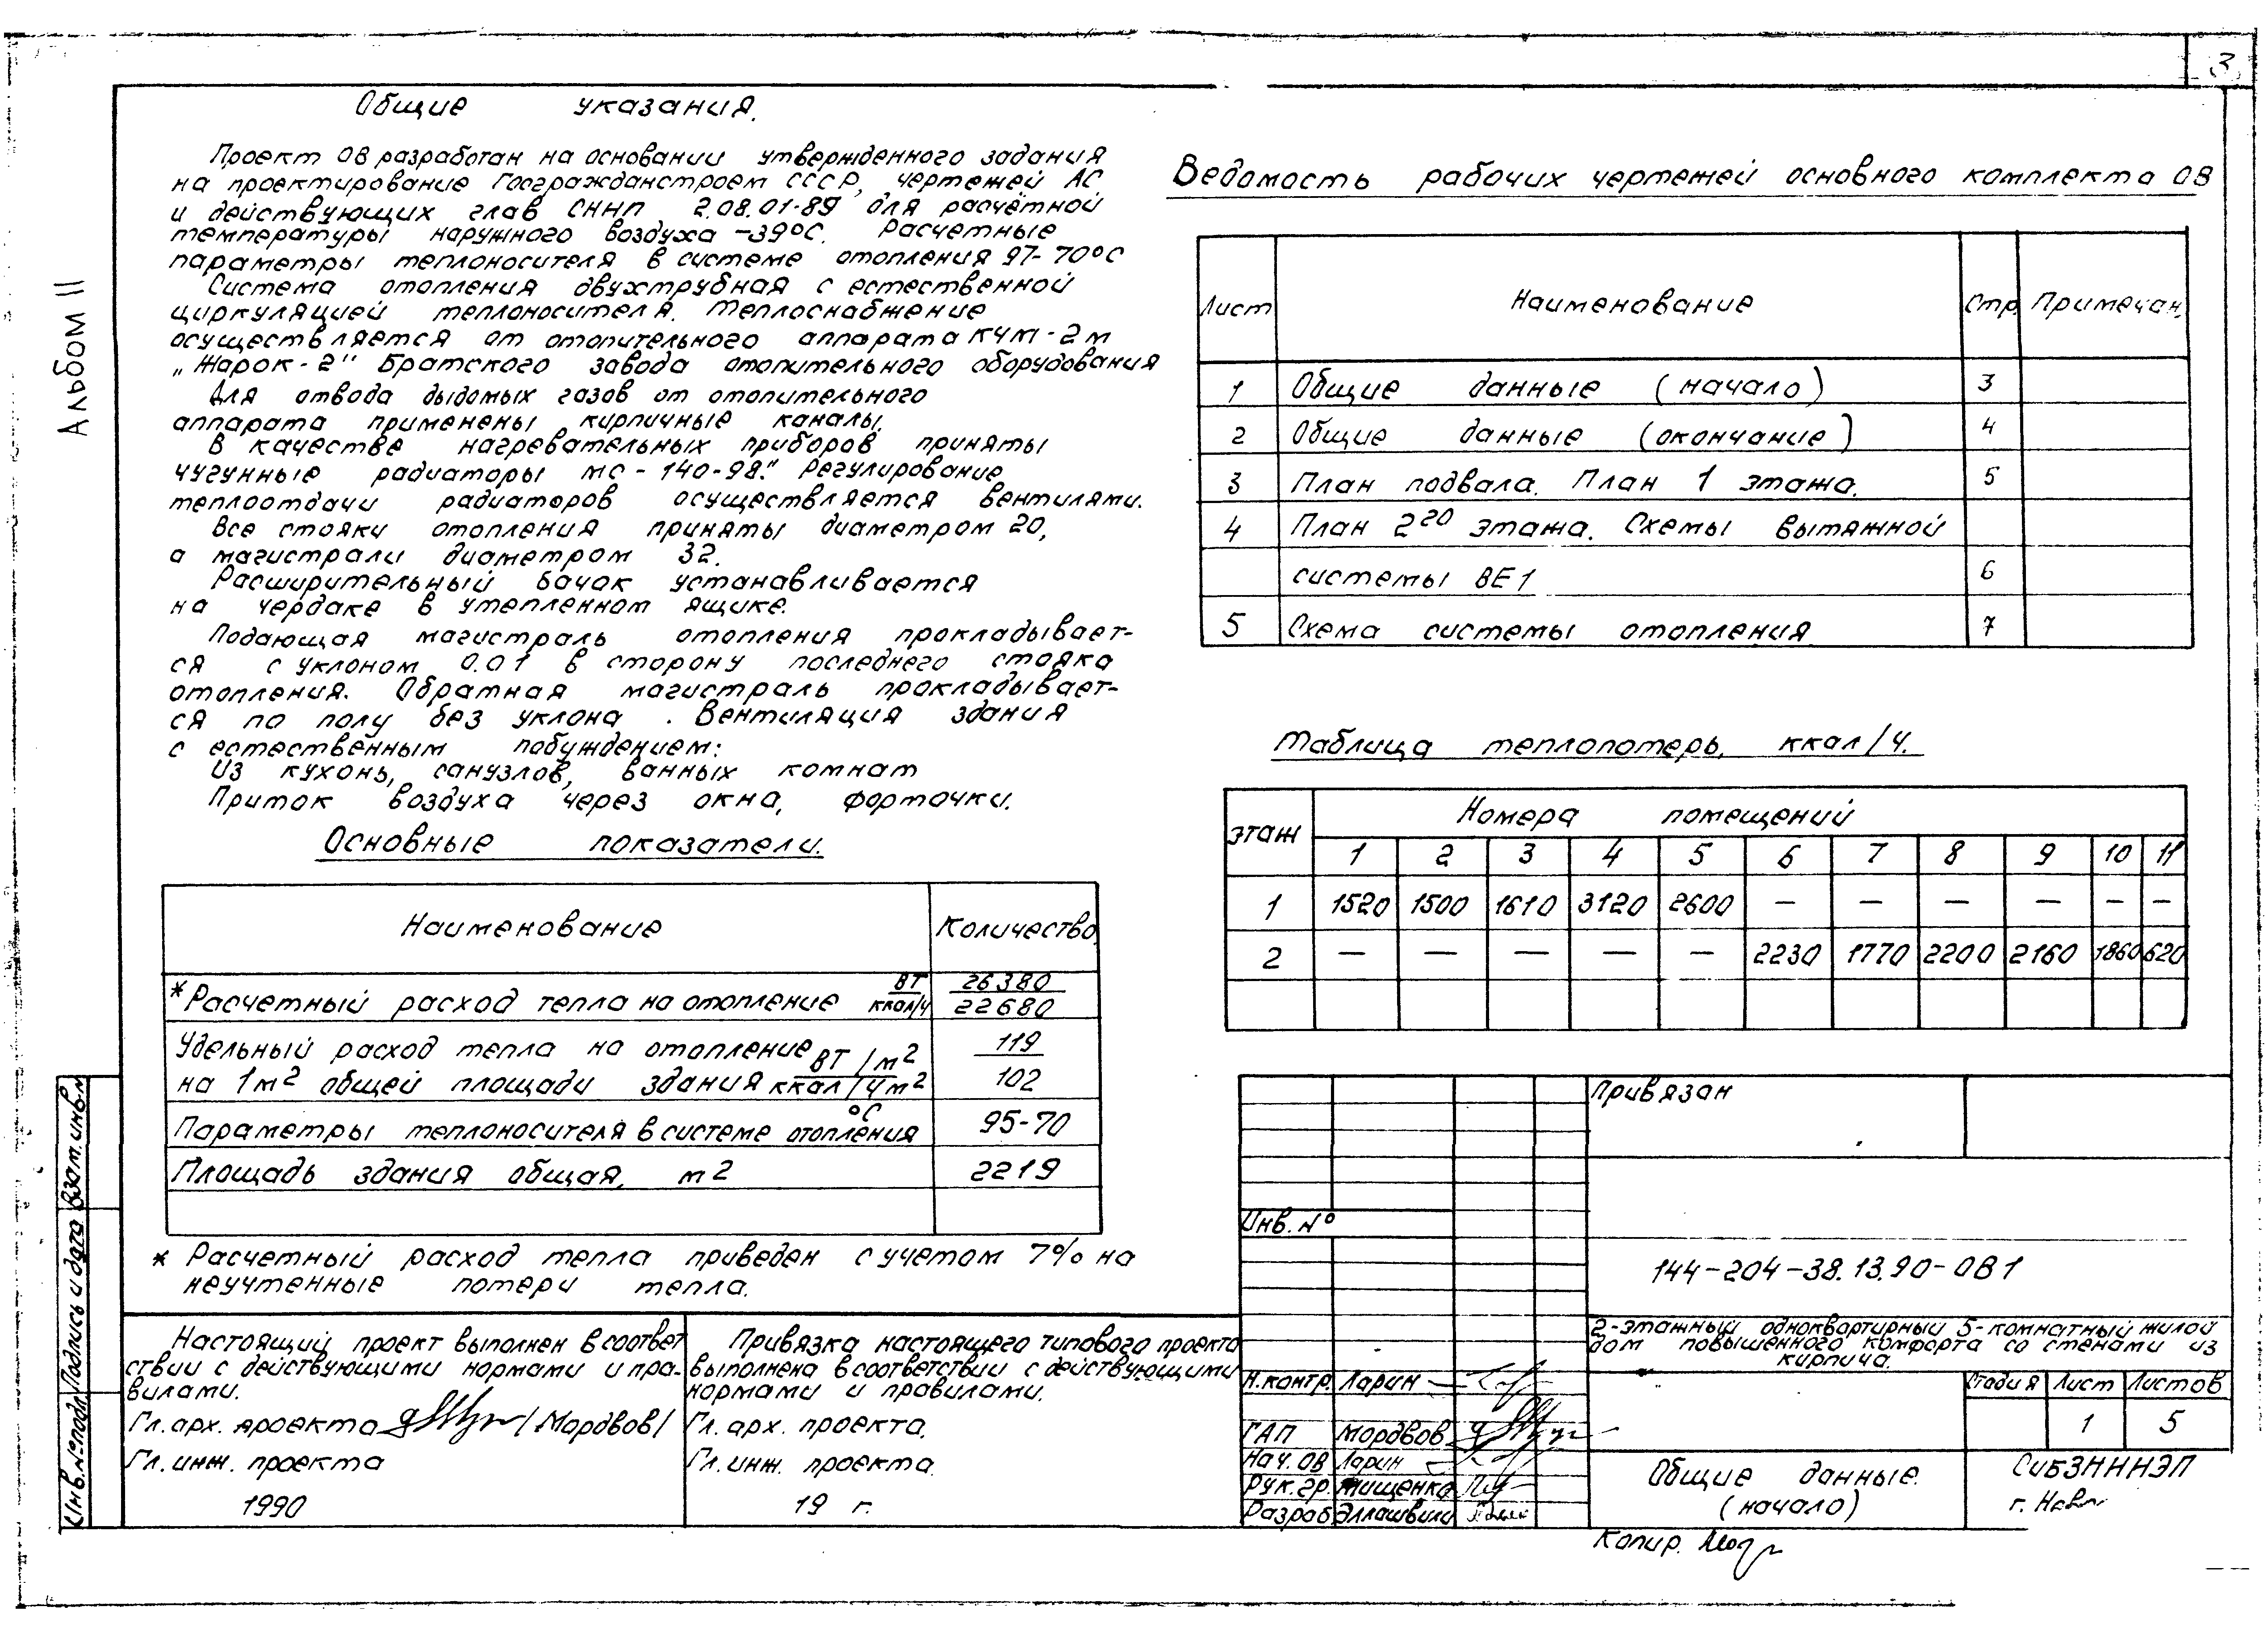 3
Альбом II
Общие указания.
Проект ОВ разработан на основании утвержденного задания
на проектирование Госгражданстроем СССР, чертежей АС
и действующих глав СНиП 2.08.01-89 для расчётной
температуры наружного воздуха -39°С. Расчетные
параметры теплоносителя в системе отопления 97-70°С
Система отопления двухтрубная с естественной
циркуляцией теплоносителя. Теплоснабжение
осуществляется от отопительного аппарата КЧМ-2м
„Жарок-2" Братского завода отопительного оборудования
Для отвода дыдомых газов от отопительного
аппарата применены кирпичные каналы.
В качестве нагревательных приборов приняты
чугунные радиаторы МС-140-98." Регулирование
теплоотдачи радиаторов осуществляется вентилями.
Все стояки отопления приняты диаметром 20,
а магистрали диаметром 32.
Расширительный бачок устанавливается
на чердаке в утепленном ящике.
Подающая магистраль отопления прокладывает-
ся с уклоном 0.01 в сторону последнего стояка
отопления. Обратная магистраль прокладывает-
ся по полу без уклона. Вентиляция здания
с естественным побуждением:
Из кухонь, санузлов, ванных комнат
Приток воздуха через окна, форточки.
Основные показатели.
Наименование Количество.
* Расчетный расход тепла на отопление ВТ 26380
ккал/ч 22680
Удельный расход тепла на отопление ВТ/м2 119
на 1м2 общей площади здания ккал/чм2 102
°С
Параметры теплоносителя в системе отопления 95-70
Площадь здания общая, м2 2219
* Расчетный расход тепла приведен с учетом 7% на
неучтенные потери тепла.
Ведомость рабочих чертежей основного комплекта ОВ
Лист Наименование Стр. Примечан.
1 Общие данные (начало) 3
2 Общие данные (окончание) 4
3 План подвала. План 1 этажа. 5
4 План 2го этажа. Схемы вытяжной
системы ВЕ1 6
5 Схема системы отопления 7
Таблица теплопотерь, ккал/ч.
этаж Номера помещений
1 2 3 4 5 6 7 8 9 10 11
1 1520 1500 1610 3120 2600 — — — — — —
2 — — — — — 2230 1770 2200 2160 1860 620
Привязан
Инв. №
144-204-38.13.90-ОВ1
2-этажный одноквартирный 5-комнатный жилой
дом повышенного комфорта со стенами из
кирпича.
Стадия Лист Листов
1 5
Н.контр. Ларин
ГАП Мордвов
Нач. ОВ Ларин
Рук. гр. Тищенко
Разраб. Эллашвили
Общие данные.
(начало)
СибЗНИИЭП
Копир.
Настоящий проект выполнен в соответ
ствии с действующими нормами и пра-
вилами.
Гл. арх. проекта /Мордвов/
Гл. инж. проекта
1990
Привязка настоящего типового проекта
выполнена в соответствии с действующими
нормами и правилами.
Гл. арх. проекта.
Гл. инж. проекта.
19 г.
Инв.№подл. Подпись и дата Взам.инв.№